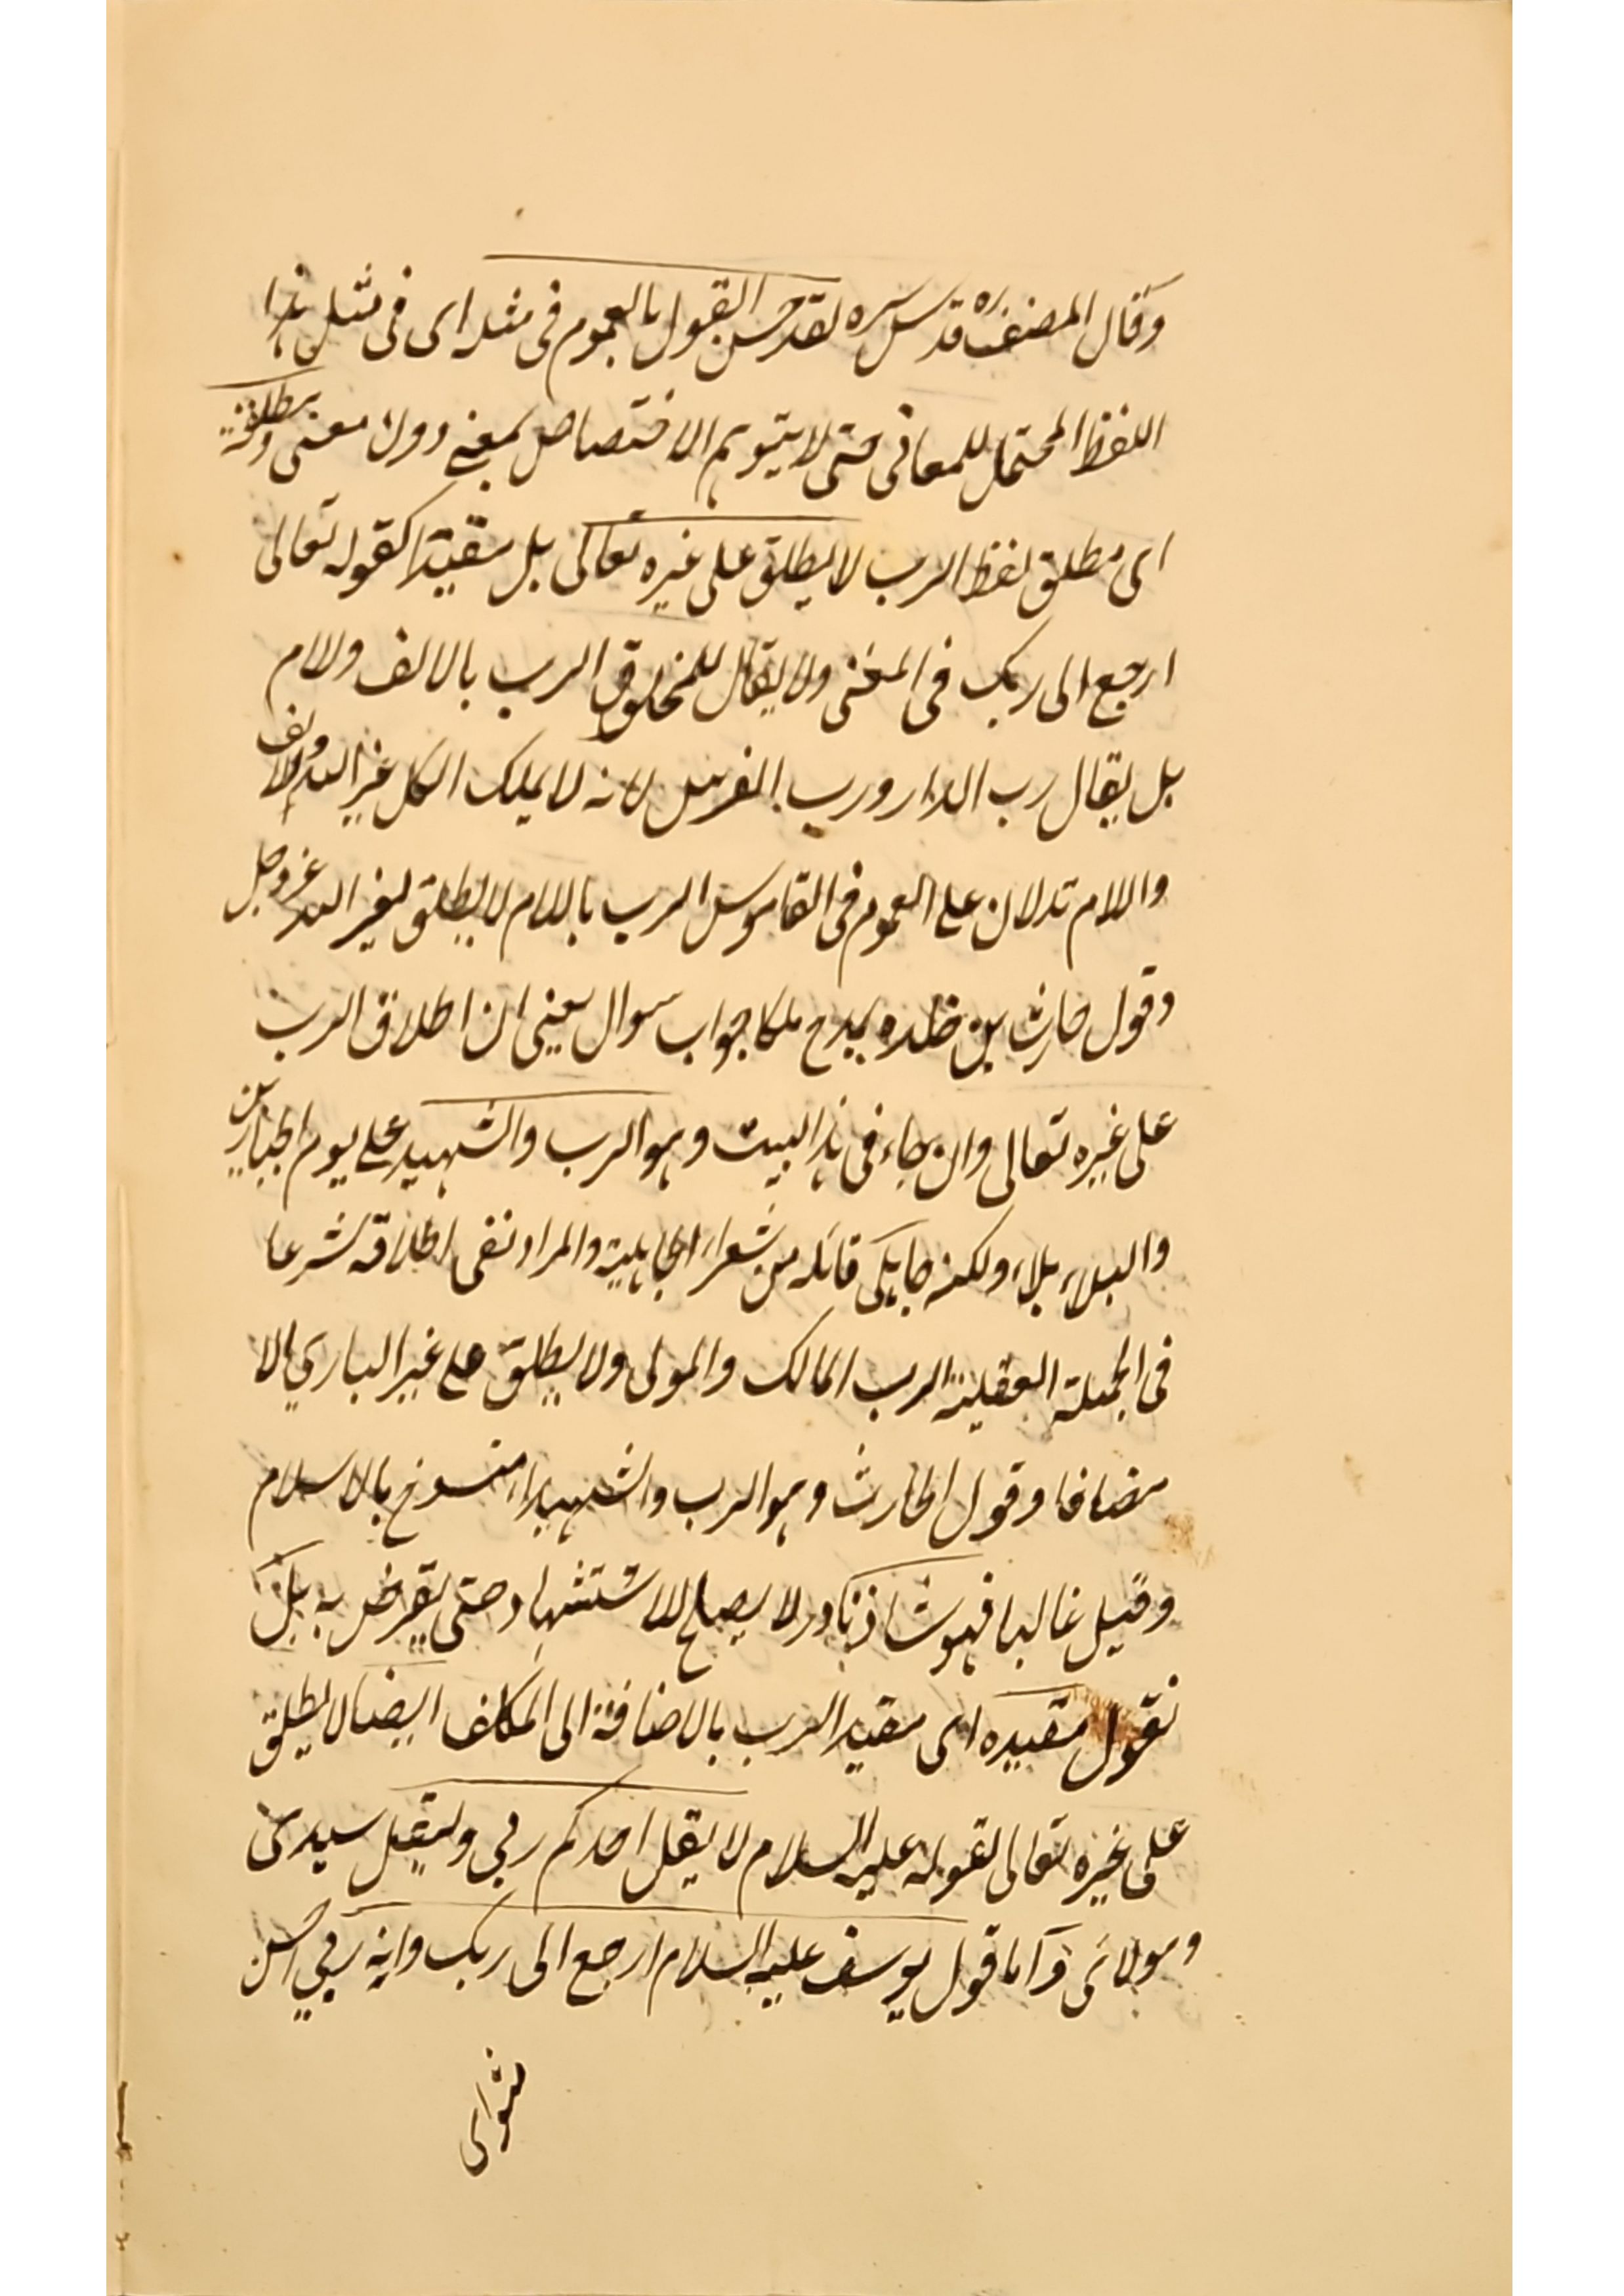 وقال المصنف ره قدس سره لقد حسن القول بالعموم فى مثله اى فى مثل هذا
اللفظ المحتمل للمعانى حتى لا يتوهم الاختصاص بمعنى دون معنى ومطلقه
اى مطلق لفظ الرب لا يطلق على غيره تعالى بل مقيدا كقوله تعالى
ارجع الى ربك فى المغنى ولا يقال للمخلوق الرب بالالف ولام
بل يقال رب الدار ورب الفرس لانه لا يملك الكل غير الله والالف
واللام تدلان على العموم فى القاموس الرب باللام لا يطلق لغير الله عز وجل
وقول حارث بن حلده يمدح ملكا جواب سوال يعنى ان اطلاق الرب
على غيره تعالى وان جاء فى هذا البيت وهو الرب والشهيد على يوم الحيارين
والبلاء بلاء ولكنه جاهلى قائله من شعراء الجاهلية والمراد نفى اطلاقه شرعا
فى الجملة العقلية الرب المالك والمولى ولا يطلق على غير البارى الا
مضافا وقول الحارث وهو الرب والشهيد اه منسوخ بالاسلام
وقيل غالبا فهو شاذ نادر لا يصلح للاستشهاد حتى يقرض به بل
نقول مقيده اى مقيد الرب بالاضافة الى المكلف ايضا لا يطلق
على غيره تعالى لقوله عليه السلام لا يقل احدكم ربي وليقل سيدى
ومولائى واما قول يوسف عليه السلام ارجع الى ربك وانه ربي احسن
مثواى